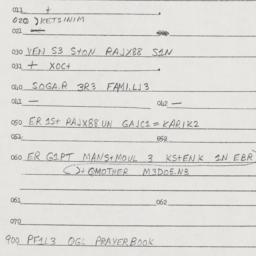 011 +
020 )KETSINIM
021 —
030 VEN S3 S+ON RAJX88 S1N
031 + XOC+
040 SOGA.R 3R3 FAMI.LI3
041 — 042 —
050 ER 1S+ RAJX88 UN GAJC1 = KARIK2
052 052
060 ER G1PT MANS+MOUL 3 KS+ENK 1N EBR
)+OMOTHER M3D0S.N3
061 062
070
900 PF1L3 OGL PRAYERBOOK